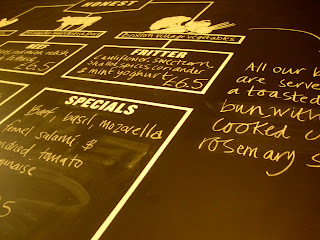 HONEST
village vegetables
BEEF
£6.5
FRITTER
cauliflower, sweetcorn
shallot, spices, coriander
& mint yoghurt
£6.5
SPECIALS
Beef, basil, mozzarella
fennel salami &
tomato
All our b
are serve
a toasted
bun with
cooked
rosemary s